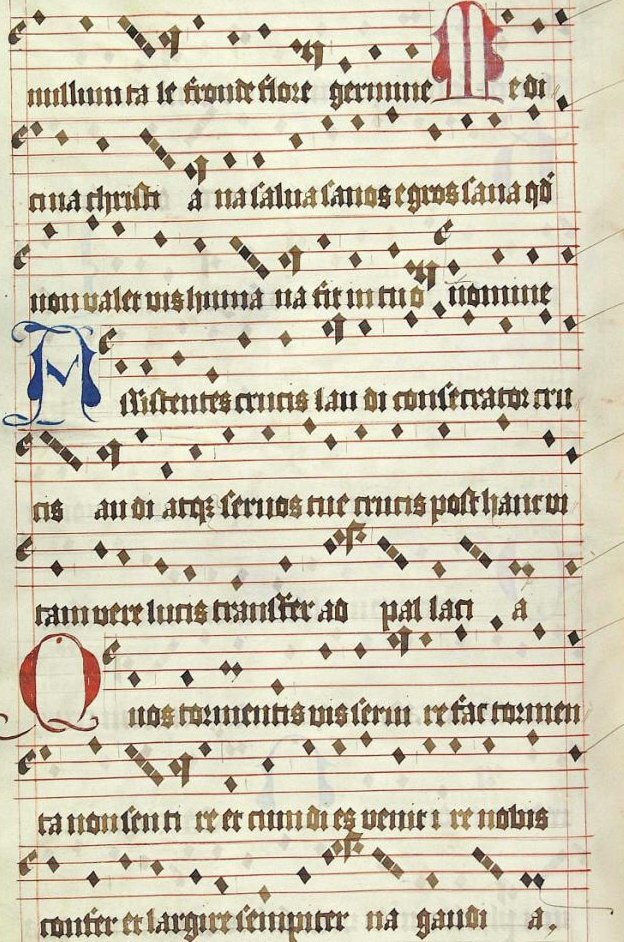 nullum ta le fronde flore germine Medi
cina christi a na salua sanos egros sana qd
non valet vis huma na fit in tuo nomine
Assistentes crucis lau di consecrator cru
cis au di atq; seruos tue crucis post hanc vi
tam vere lucis transfer ad pal laci a
Quos tormentis vis serui re fac tormen
ta non sen ti re et cum dies venit i re nobis
confer et largire sempiter na gaudi a.